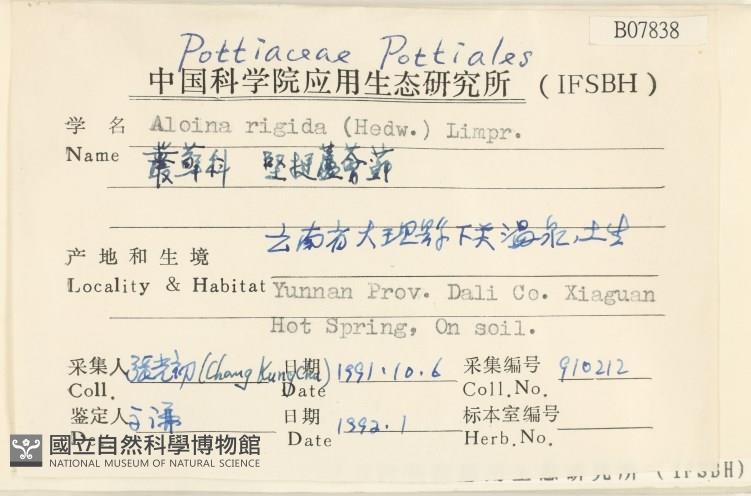 B07838
Pottiaceae Pottiales
中国科学院应用生态研究所 (IFSBH)
学 名 Aloina rigida (Hedw.) Limpr.
Name 叢蘚科 堅挺蘆薈蘚
云南省大理县下关温泉，土生
产地和生境
Locality & Habitat Yunnan Prov. Dali Co. Xiaguan
Hot Spring, On soil.
采集人 張光初 (Chang Kung Chu) 日期 1991.10.6 采集编号 910212
Coll. Date Coll.No.
鉴定人 于谦 日期 1992.1 标本室编号
Date Herb.No.
國立自然科學博物館
NATIONAL MUSEUM OF NATURAL SCIENCE
生态研究所 (IFSBH)